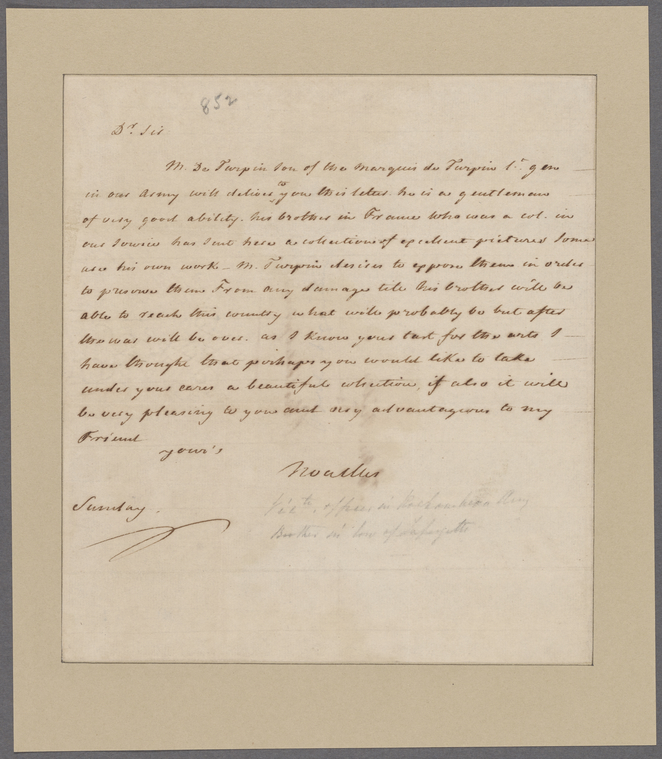 852
Dr. Sir
M. De Turpin son of the marquis de Turpin Lt. gen
in our Army will deliver to you this letter. he is a gentleman
of very good ability. his brother in France who was a col. in
our service has sent here a collection of excelent pictures some
are his own work - M. Turpin desires to expose them in order
to preserve them From any damage till his brother will be
able to reach this country what will probably be but after
the war will be over. as I know your tast for the arts I
have thought that perhaps you would like to take
under your cares a beautiful collection, if also it will
be very pleasing to you and very advantagious to my
Friend
your's
Noailles
Sunday.
Victe. officer in Rochambeau Army
Brother in law of Lafayette